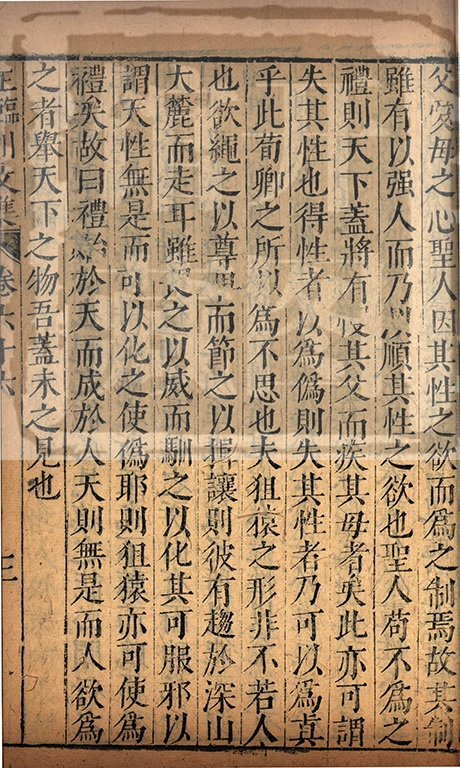 父愛母之心聖人因其性之欲而爲之制焉故其制
雖有以强人而乃以順其性之欲也聖人苟不爲之
禮則天下蓋將有慢其父而疾其母者矣此亦可謂
失其性也得性者以爲僞則失其性者乃可以爲真
乎此荀卿之所以爲不思也夫狙猿之形非不若人
也欲繩之以尊卑而節之以揖讓則彼有趨於深山
大麓而走耳雖畏之以威而馴之以化其可服邪以
謂天性無是而可以化之使僞耶則狙猿亦可使爲
禮矣故曰禮始於天而成於人天則無是而人欲爲
之者舉天下之物吾蓋未之見也
王臨川文集 卷六十六 三